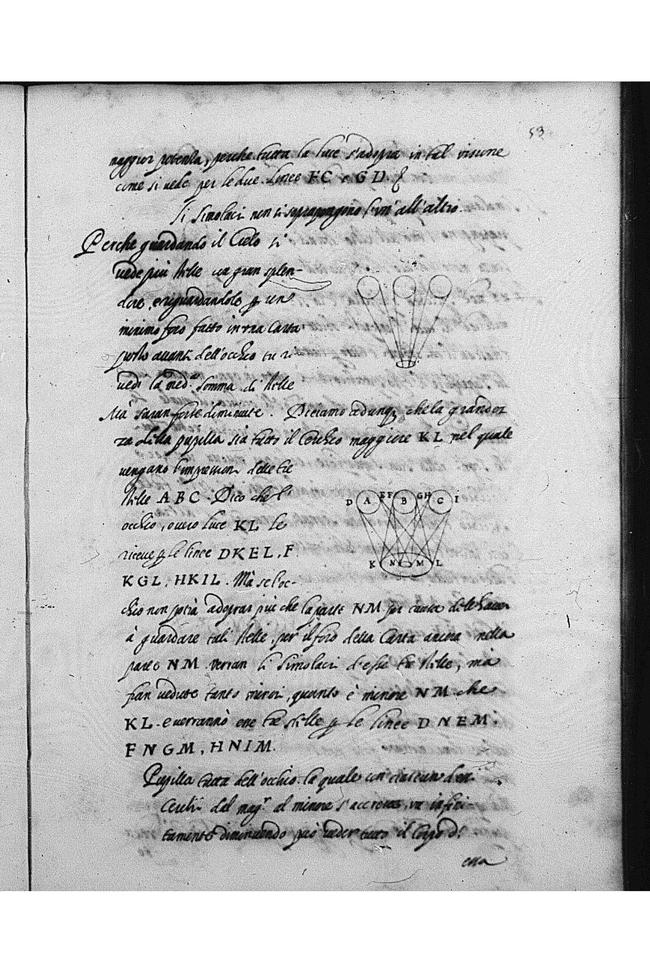 53
maggior potenza, perche tutta la luce s'adopra in tal visione
come si vede per le due linee F C e G D.
Li simolaci non si soprapongono l'un' all'altro.
Perche guardando il Cielo si
vede più stelle un gran splen-
dore, e riguardandole p un
minimo foro fatto in una Carta
posto avanti dell'occhio tu ri
vedi la med.ª somma di stelle
Mà saran forte diminuite. Diciamo adunq, che la grandez
za della pupilla sia tutto il Cerchio maggiore K L nel quale
vengano l'impressioni delle tre
stelle A B C. Dico che l'
occhio, overo luce K L le
riceve p le linee D K E L, F
K G L, H K I L. Mà se l'oc-
chio non potrà adoprar più che la parte N M per causa delle
à guardare tali stelle, per il foro della Carta nella
parte N M verran li simolaci d'esse tre stelle, mà
fian vedute tanto minori, quanto è minore N M che
K L. e verranno esse tre stelle p le linee D N E M,
F N G M, H N I M.
Pupilla tutta dell'occhio la quale con ciascun de
Cerchi dal mag.r al minore s'accresce, va infini-
tamente diminuendo può veder tutto il Corpo d'
essa
D A E F B G H C I
K N M L